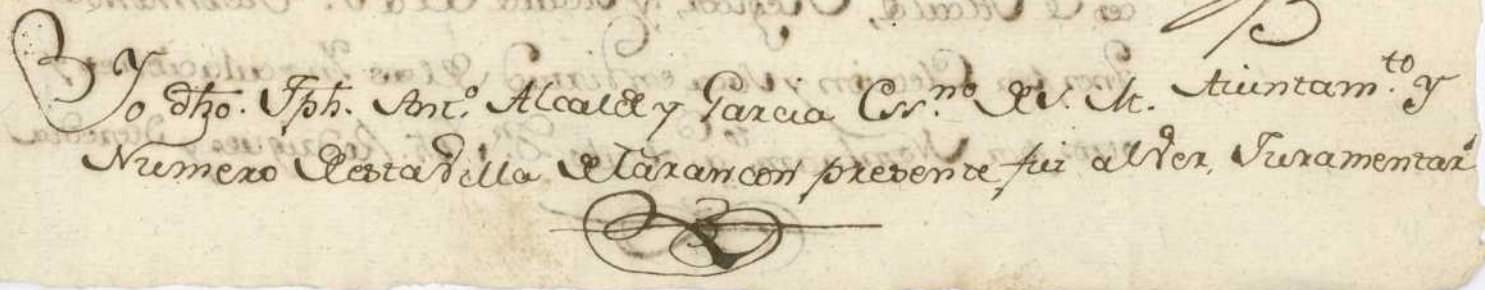 Yo dho. Jph. Ant.º Alcalde y Garcia Esn.no de S. M. Aiuntam.to y
Numero de esta Villa de Tarancon presente fui al Ver, Juramentar